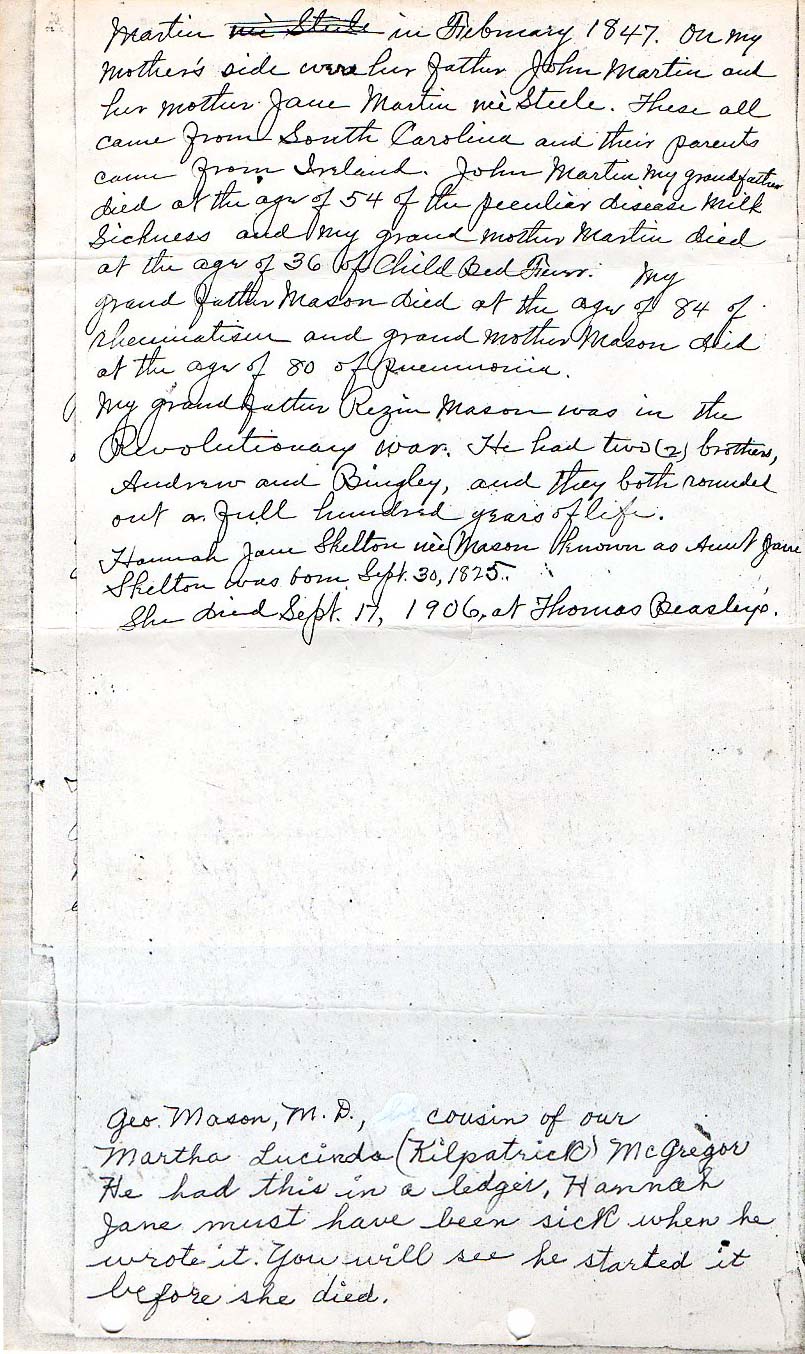 Martin neè Steele in February 1847. On my
mother's side were her father John Martin and
her mother Jane Martin neè Steele. These all
came from South Carolina and their parents
came from Ireland. John Martin my grandfather
died at the age of 54 of the peculiar disease Milk
Sickness and my grand mother Martin died
at the age of 36 of Child Bed Fever. My
grand father Mason died at the age of 84 of
rheumatism and grand mother Mason died
at the age of 80 of pneumonia.
My grand father Rezin Mason was in the
Revolutionary war. He had two (2) brothers,
Andrew and Bingley, and they both rounded
out a full hundred years of life.
Hannah Jane Skelton neè Mason known as Aunt Jane
Skelton was born Sept. 30, 1825.
She died Sept. 17, 1906, at Thomas Beasley's.
Geo. Mason, M.D., cousin of our
Martha Lucinda (Kilpatrick) McGregor
He had this in a ledger, Hannah
Jane must have been sick when he
wrote it. You will see he started it
before she died.